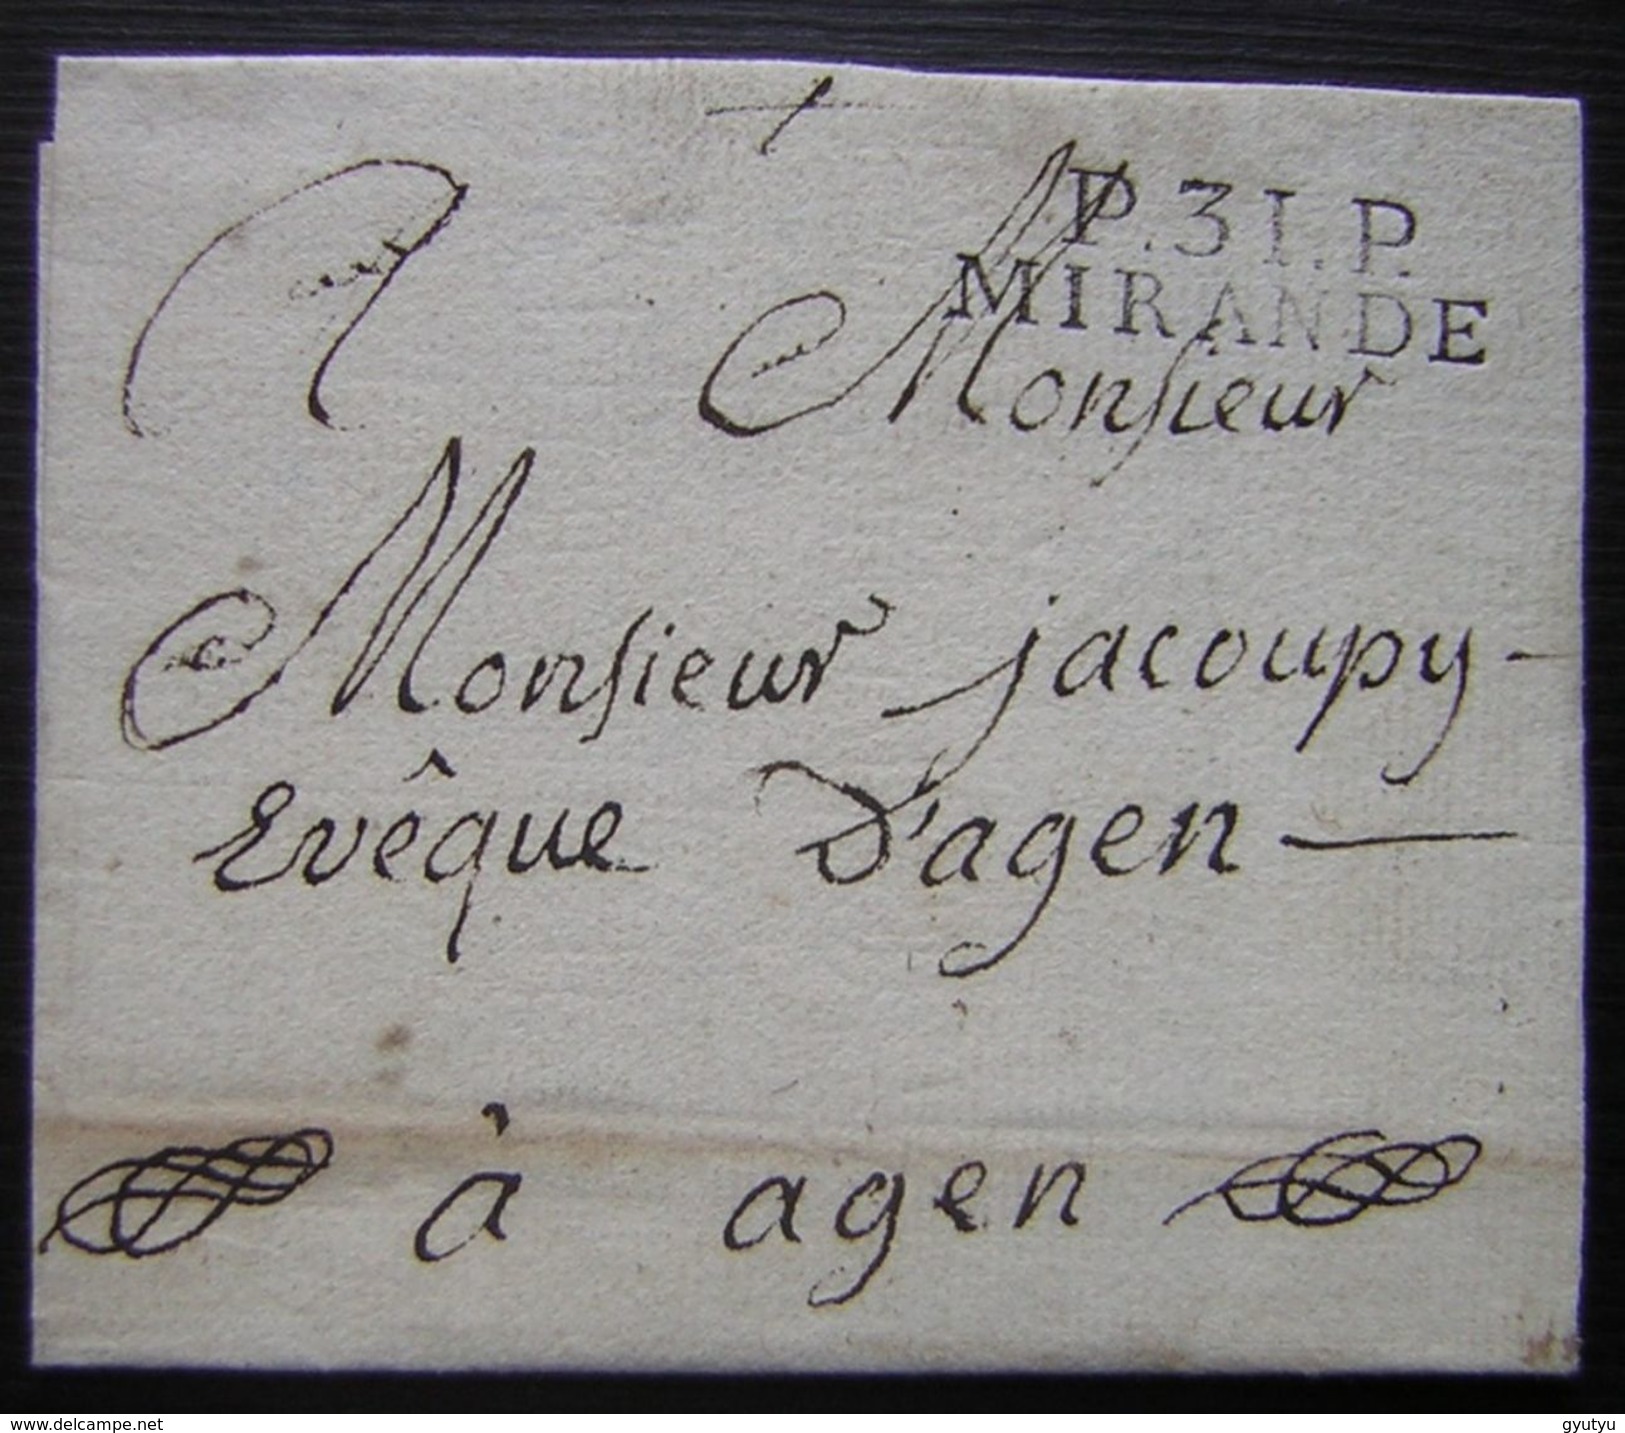 P.31.P.
MIRANDE
A Monsieur
Monsieur jacoupy
Evêque D'agen
à agen
www.delcampe.net
gyutyu